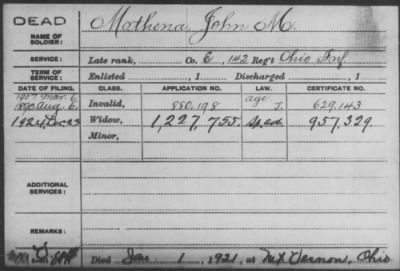 DEAD
NAME OF SOLDIER: Mathena, John M.
SERVICE: Late rank, Co. E, 142 Reg't Ohio Inf.
TERM OF SERVICE: Enlisted , 1 Discharged , 1
DATE OF FILING. CLASS. APPLICATION NO. LAW. CERTIFICATE NO.
1907 Mar. 6
1890 Aug. 6, Invalid, 880.198 age J. 629.143
1924 Dec 23 Widow, 1,227,755. 957,329.
Minor,
ADDITIONAL SERVICES:
REMARKS:
Died Jan 1, 1921, at Mt. Vernon, Ohio